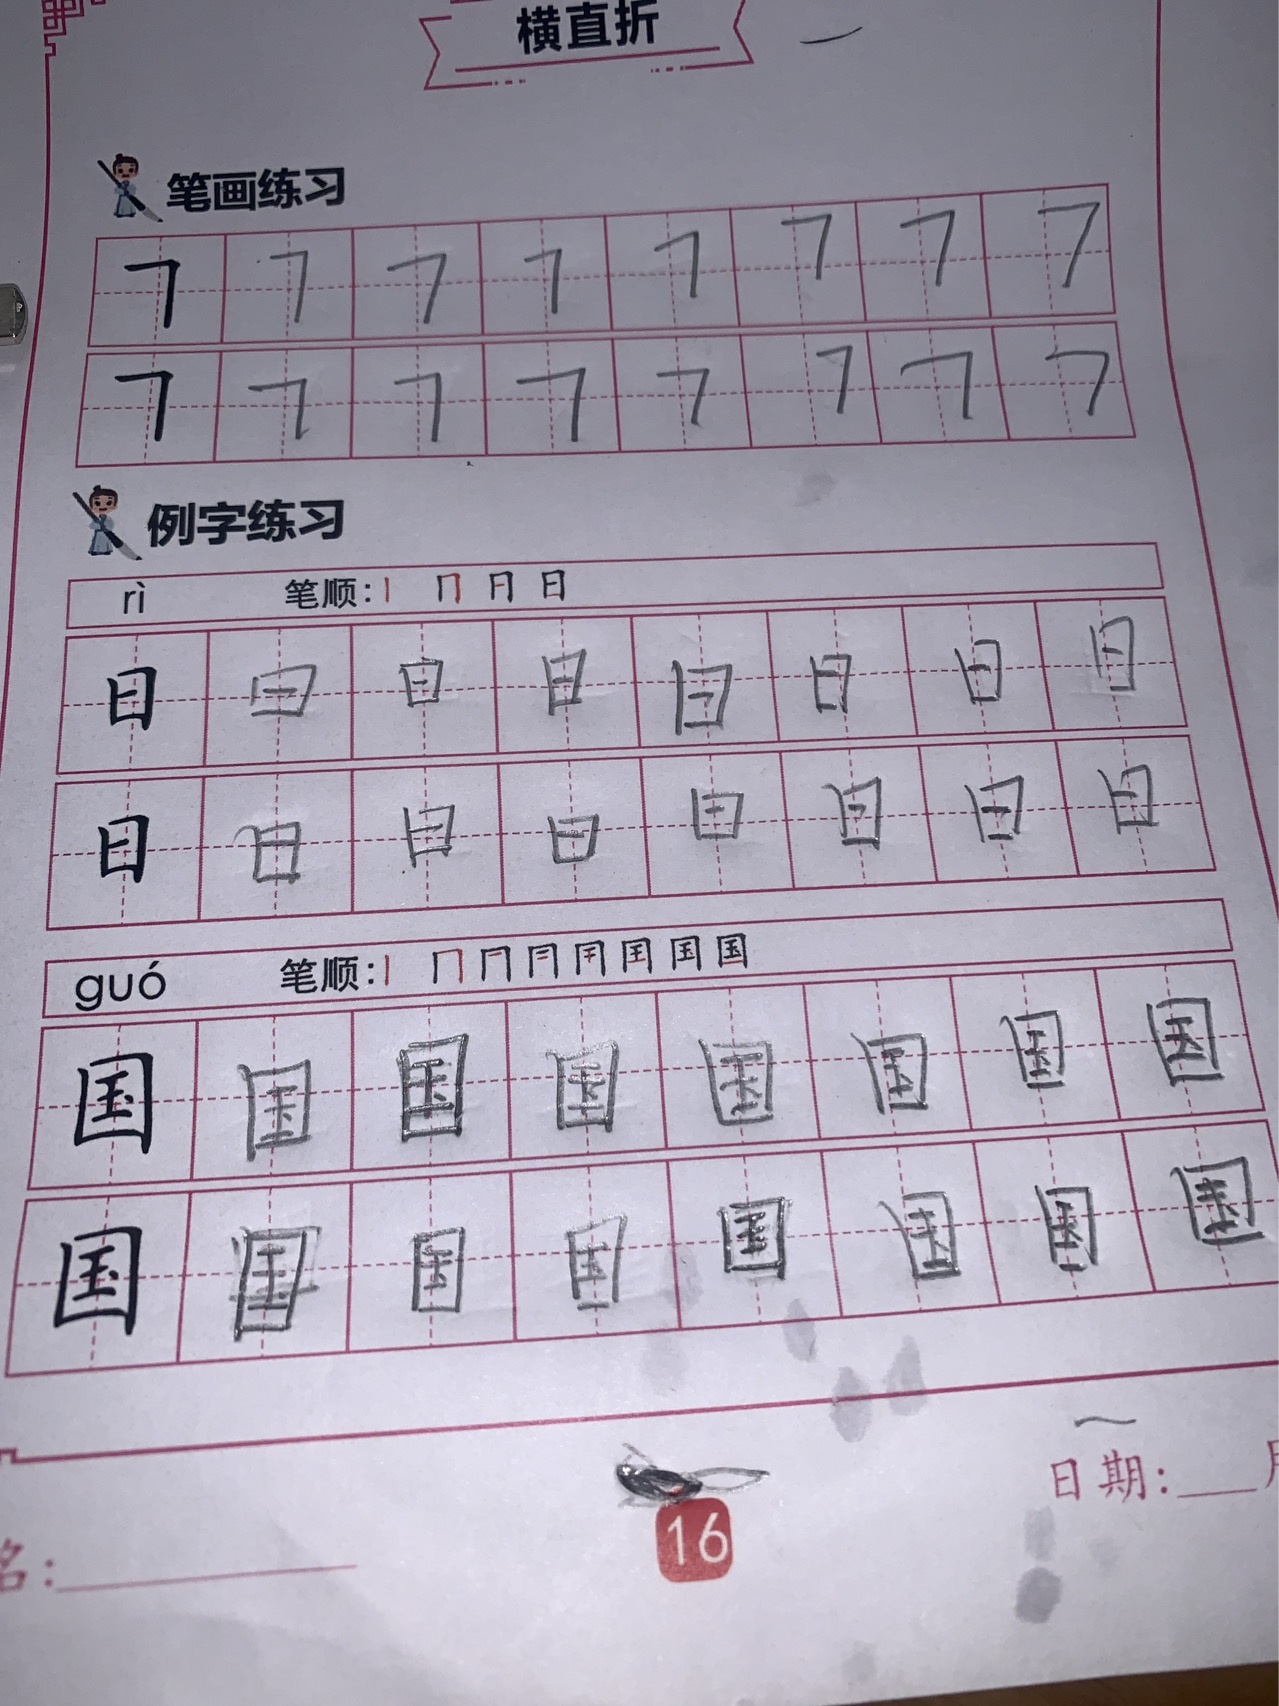 横直折
笔画练习
㇕ ㇕ ㇕ ㇕ ㇕ ㇕ ㇕ ㇕
㇕ ㇕ ㇕ ㇕ ㇕ ㇕ ㇕ ㇕
例字练习
rì 笔顺: 丨 冂 月 日
日 日 日 日 日 日 日 日
日 日 日 日 日 日 日 日
guó 笔顺: 丨 冂 国
国 国 国 国 国 国 国 国
国 国 国 国 国 国 国 国
日期:___月
16
名: